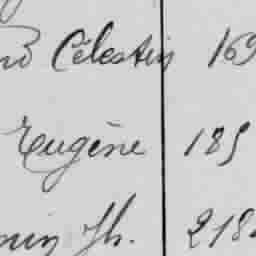 Célestin 169
Eugène 185
Jh. 218